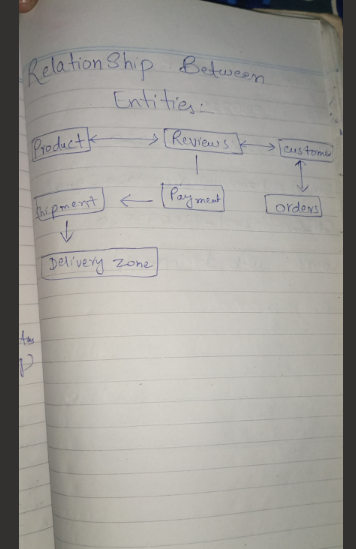 RelationShip Between
Entities:-
Product Reviews Custome
Shipment Payment orders
Delivery zone